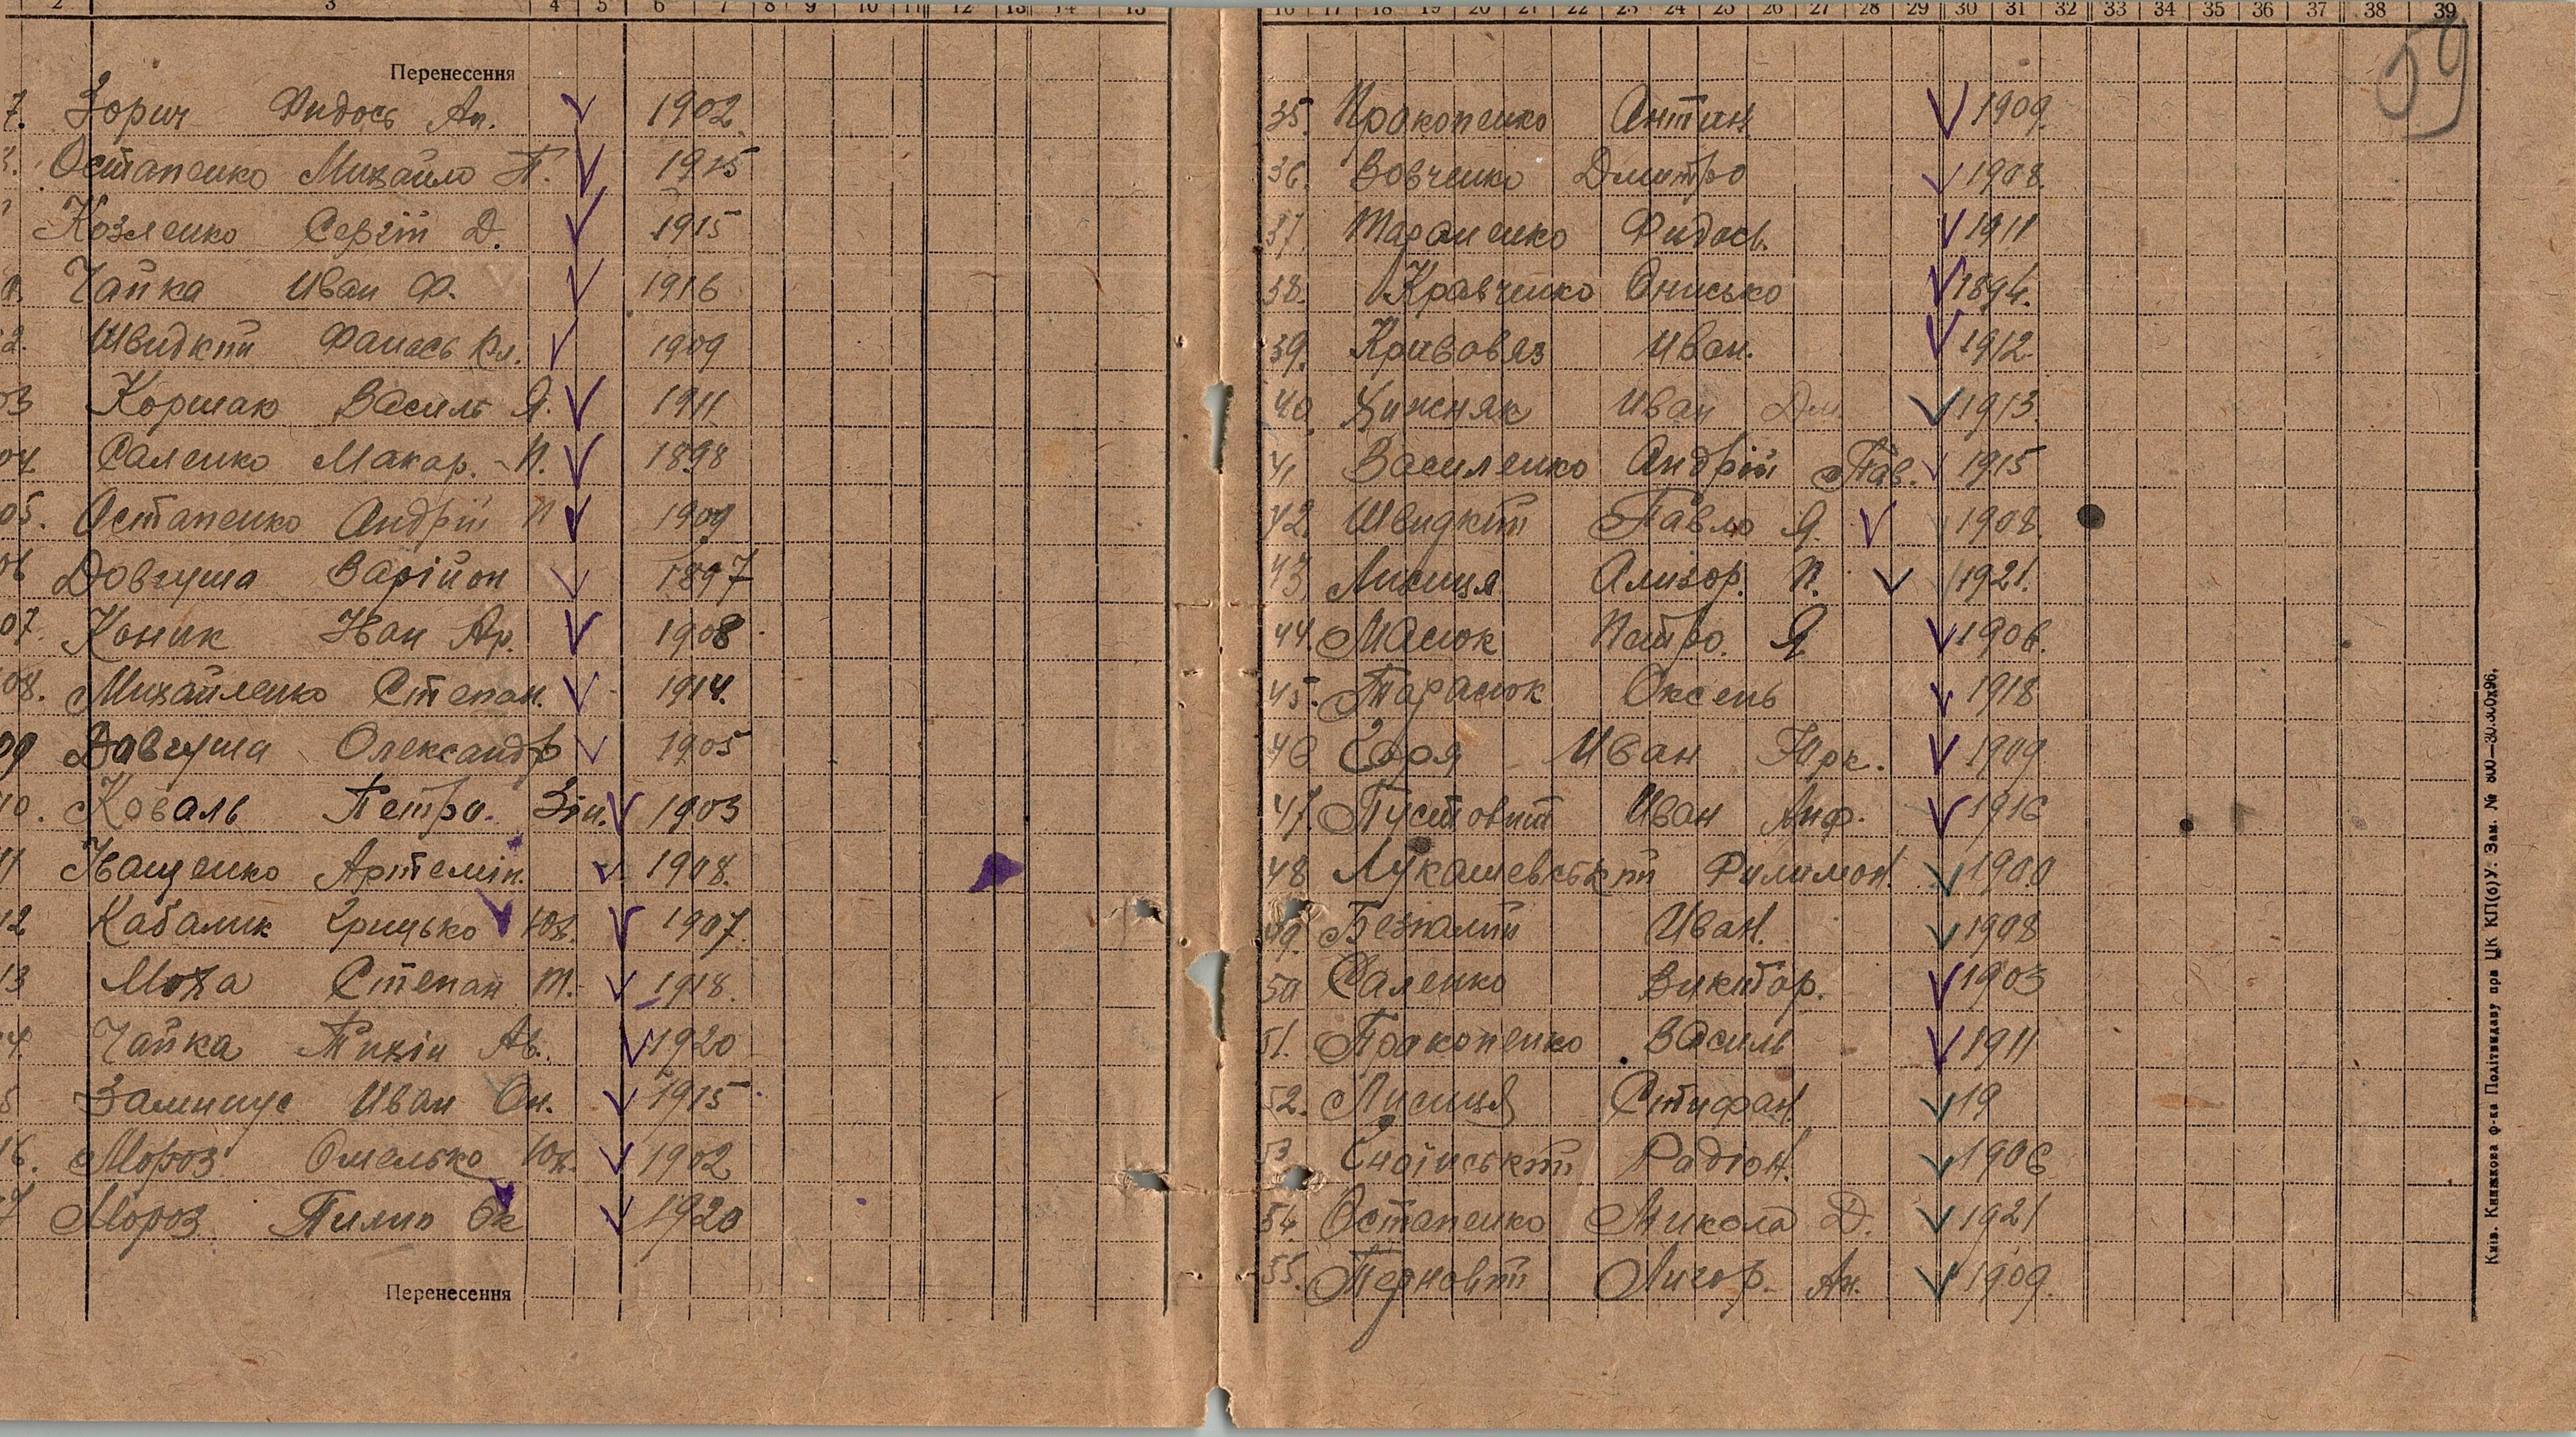 2 3 4 5 6 7 8 9 10 11 12 13 14 15
Перенесення
7. Зорич Фидось Ан. 1902
Остапенко Михайло П. 1915
Козленко Сергій Д. 1915
Чайка Иван Ф. 1916
2. Швидкий Фанась Кл. 1909
03 Коршак Василь Я. 1911
04 Саленко Макар. П. 1898
05. Остапенко Андрій П 1909
06 Довгуша Варійон 1897
07. Коник Іван Ар. 1908
08. Михайленко Степан. 1914.
09 Довгуша Олександр 1905
10. Коваль Петро. Зін. 1903
11 Іващенко Артемій. 1908.
12 Кабалик Грицько Юх. 1907.
13 Моха Степан Т. 1918.
4. Чайка Тихін Ав. 1920
5 Иван Он. 1915
16. Мороз Омелько Юх. 1902
7 Мороз Пилип Ок 1920
Перенесення
16 17 18 19 20 21 22 23 24 25 26 27 28 29 30 31 32 33 34 35 36 37 38 39
59
35. Прокопенко Антин. 1909.
36. Вовченко Дмитро 1908.
37. Тараненко Фидось. 1911
38. Кравченко Онисько 1894.
39. Кривовяз Иван. 1912.
40. Кижняк Иван Дм. 1913.
41 Василенко Андрій Пав. 1915
42. Швидкий Павло Я. 1908.
43. Лисиця Ализор. П. 1921.
44. Масюк Петро. Я. 1906.
45. Тарасюк Оксень 1918
46 Горя Иван Юрк. 1909
47. Пустовит Иван Анф. 1916
48 Лукашевський Филимон. 1900
49. Безпалий Иван. 1908
50 Саленко Виктор. 1903
51. Прокопенко Василь 1911
52. Лисиця Стифан. 19
53 Радіон. 1906
54. Остапенко Микола Д. 1921
55. Терновий Лигор. Ан. 1909.
Київ. Книжкова ф-ка Політвидаву при ЦК КП(б)У. Зам. № 800—30.300х96.